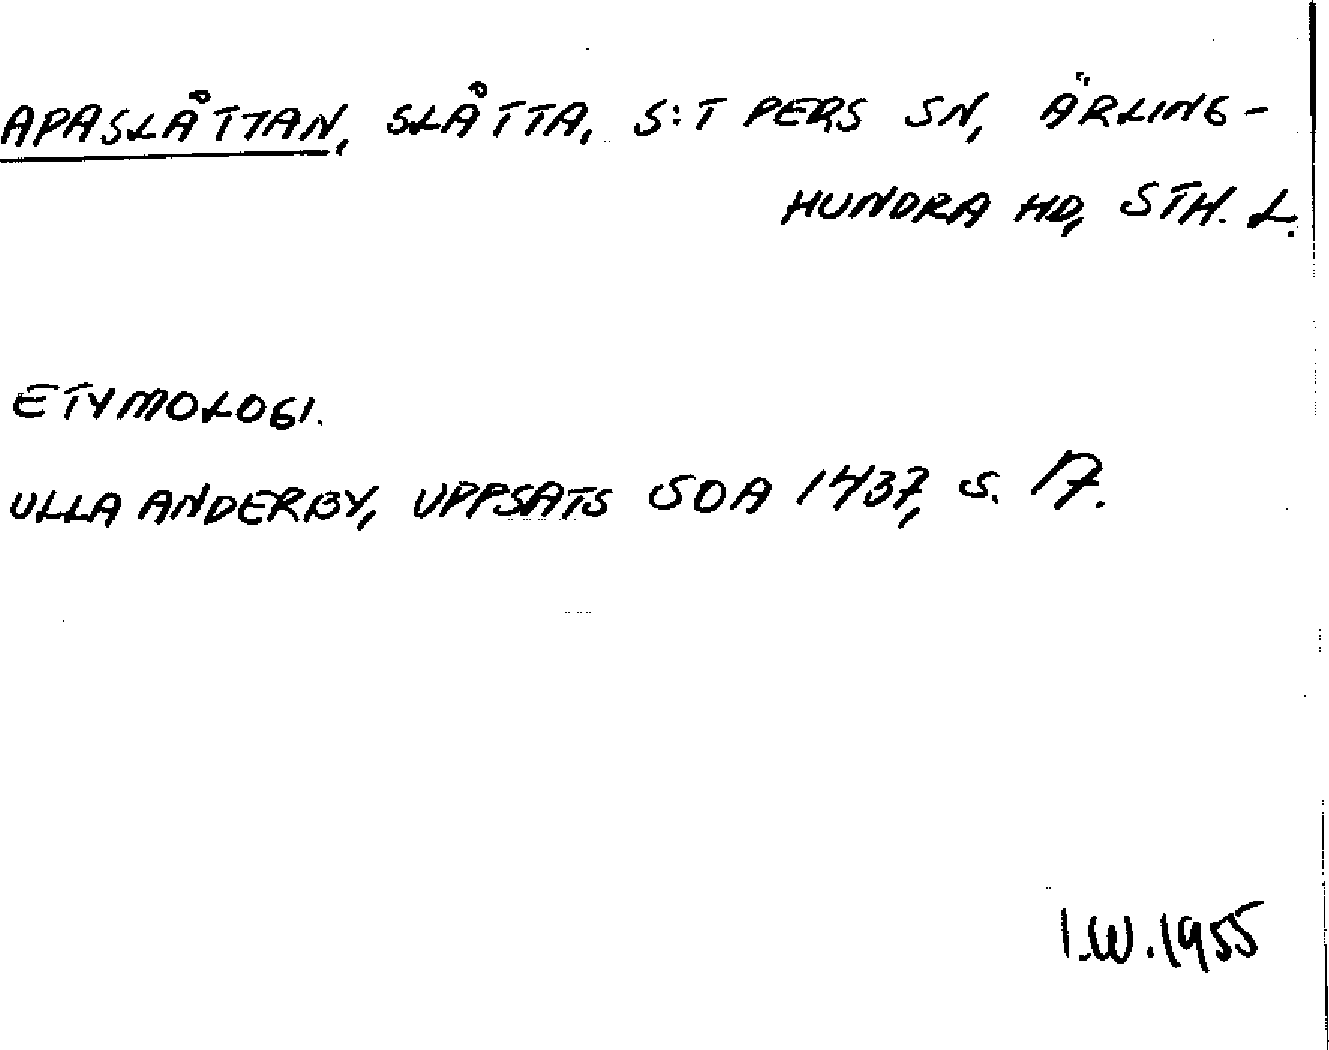 APASLÅTTAN, SLÅTTA, S:T PERS SN, ÄRLING-
HUNDRA HD, STH. L.
ETYMOLOGI.
ULLA ANDERBY, UPPSATS SOA 1437, S. 17.
I.W.1955